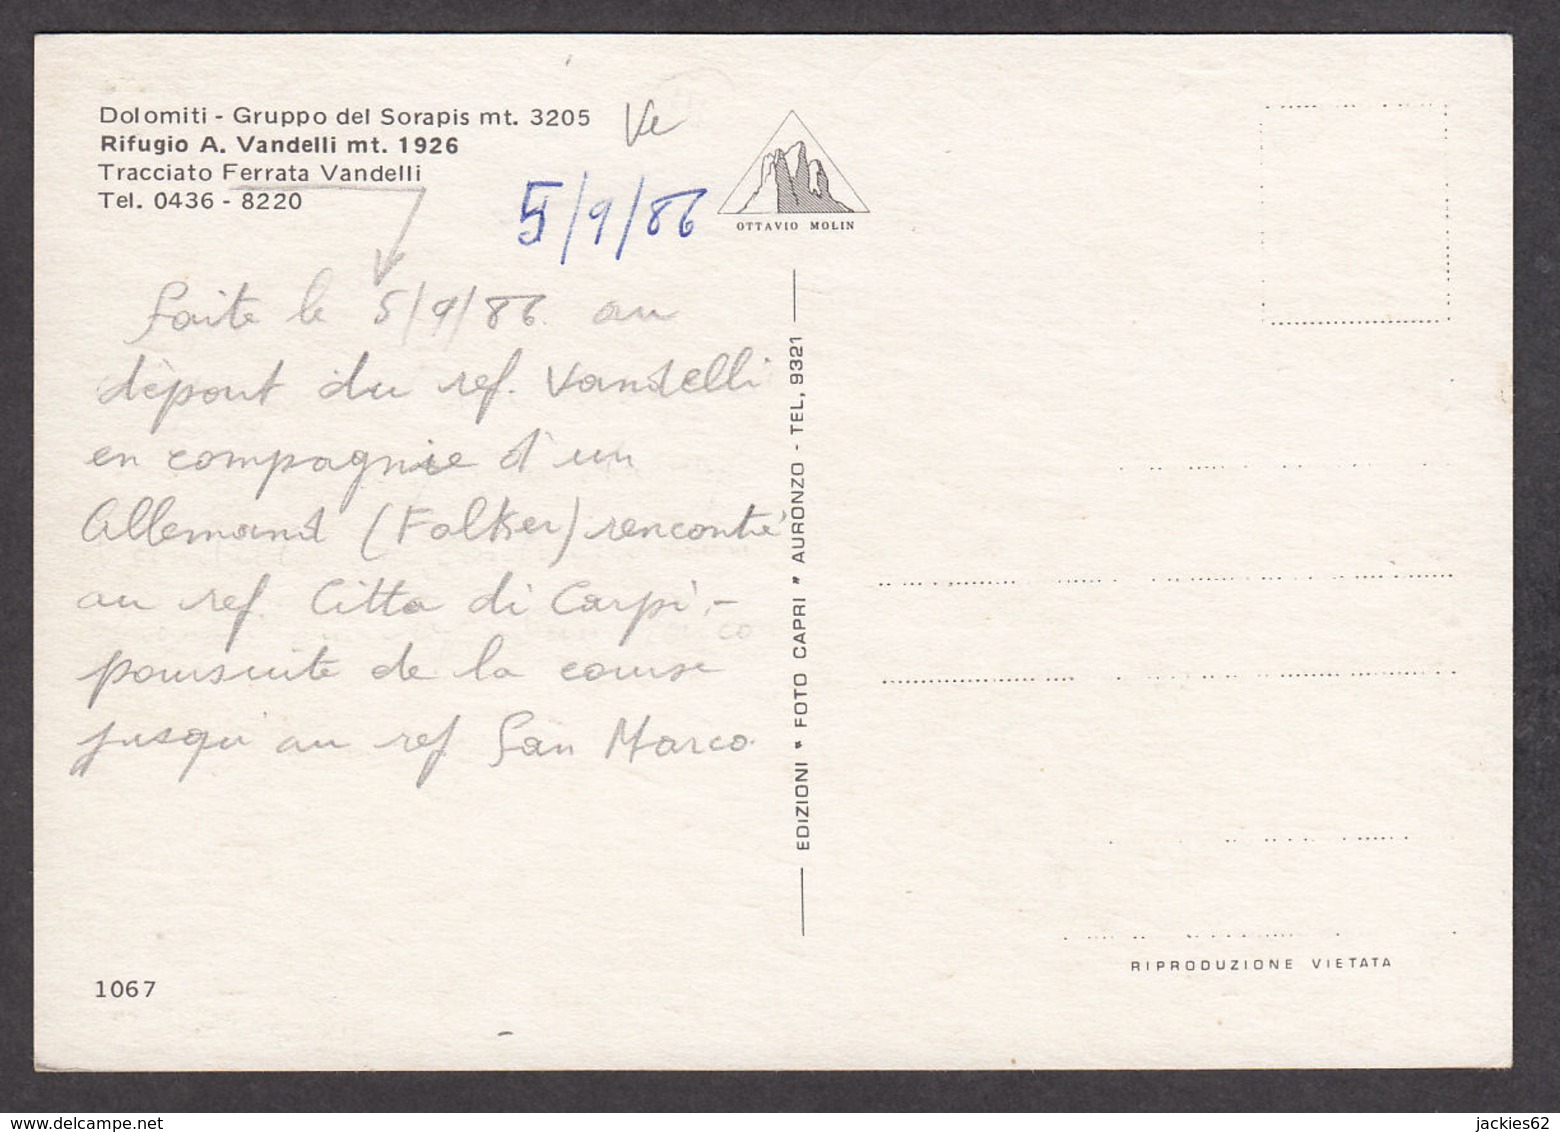 Dolomiti - Gruppo del Sorapis mt. 3205
Rifugio A. Vandelli mt. 1926
Tracciato Ferrata Vandelli
Tel. 0436 - 8220
Ve
5/9/86
OTTAVIO MOLIN
faite le 5/9/86 au
départ du ref. Vandelli
en compagnie d'un
Allemand (Folker) rencontré
au ref. Citta di Carpi, -
poursuite de la course
jusqu'au ref San Marco.
EDIZIONI * FOTO CAPRI * AURONZO - TEL. 9321
RIPRODUZIONE VIETATA
1067
jackies62